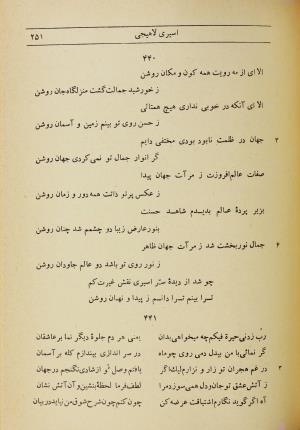 اسیری لاهیجی
۲۵۱
۴۴۰
الا ای از مه رویت همه کون و مکان روشن
ز خورشید جمالت گشت منزلگاه جان روشن
الا ای آنکه در خوبی نداری هیچ همتائی
ز حسن روی تو بینم زمین و آسمان روشن
۳ جهان در ظلمت نابود بودی مختفی دایم
گر انوار جمال تو نمی‌کردی جهان روشن
صفات عالم‌افروزت ز مرآت جهان پیدا
ز عکس پرتو ذاتت همه دور و زمان روشن
بزیر پردهٔ عالم بدیدم شاهد حسنت
بنور عارض زیبا دو چشمم شد چنان روشن
۶ جمال نوربخشت شد ز مرآت جهان ظاهر
ز نور روی تو باشد دو عالم جاودان روشن
چو شد از دیدهٔ سر اسیری نقش غیرت گم
ترا بینم ترا دانم ز پیدا و نهان روشن
۴۴۱
رب زدنی حیرة فیکم چه میخواهی بدان
یعنی هر دم جلوهٔ دیگر نما بر عاشقان
گر نمائی با من بیدل دمی روی چو ماه
در سر اندازی بیندازم کله بر آسمان
۳ در غم هجران تو زار و نزارم لیک اگر
یابم وصل تو از شادی نگنجم در جهان
ز آتش عشق تو جان و دل همی سوزد مرا
لطف فرما لحظهٔ بنشین و آن آتش نشان
آه اگر گوید نگارم اشتیاقت عرضه کن
چون کنم چون شرح شوق من نیاید در بیان